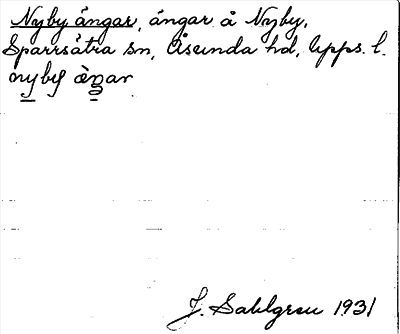 Nyby ängar, ängar å Nyby,
Sparrsätra sn, Åsunda hd, Upps. l.
nyby ängar
J. Sahlgren 1931